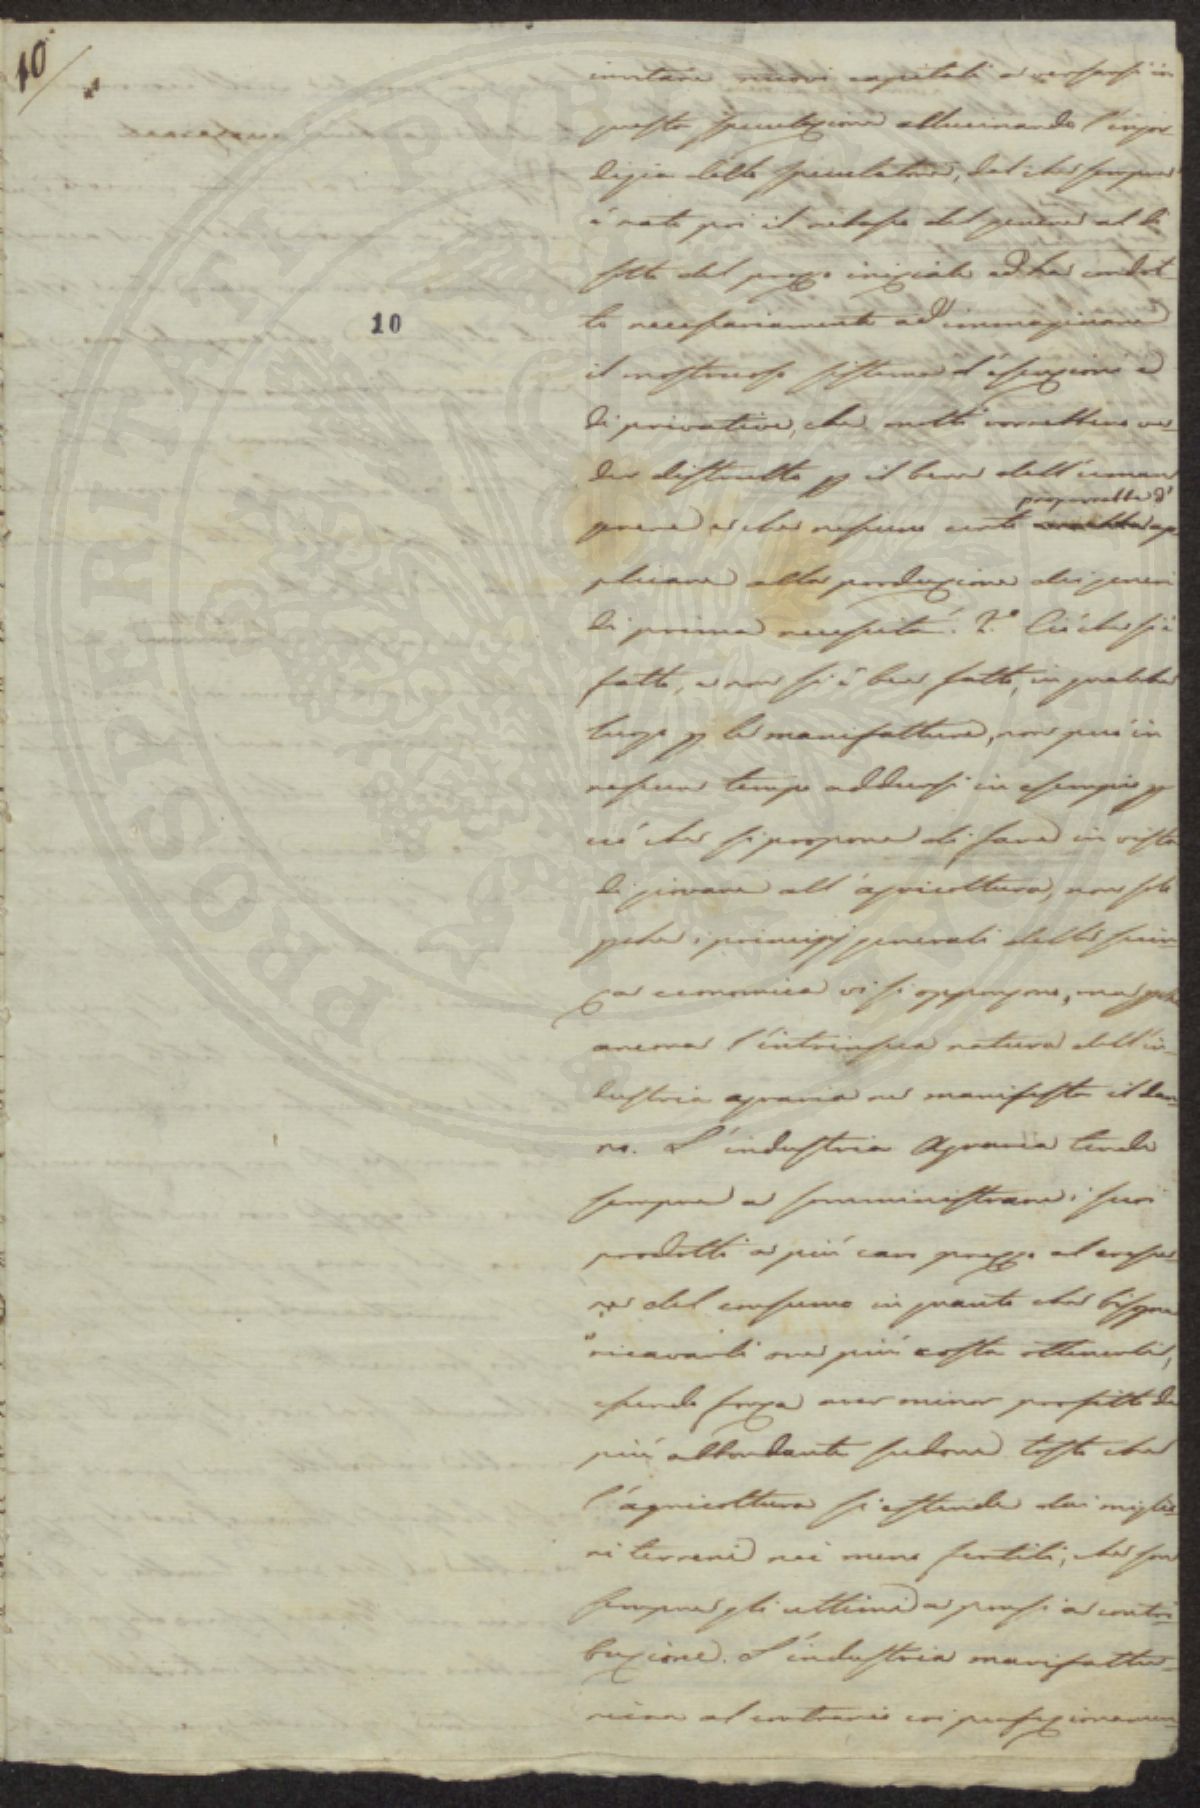 10
10
invitare nuovi capitali a versarsi in
questa speculazione allucinando l'ingor
digia dello speculatore, dal che sempre
é nato poi il ribasso del genere al di
sotto del prezzo iniziale ed ha condot
to necessariamente ad immaginare
il mostruoso sistema d'esenzioni e
di privative, che molti vorrebbero ve-
der distrutto p il bene dell'uman
proporrebbe d'
genere e che nessuno certo ap
plicare alla produzione dei generi
di prima necessitá. 2.° Ció che si é
fatto, e non si é ben fatto, in qualche
luogo p le manifatture, non puó in
nessun tempo addursi in esempio p
ció che si propone di fare in vista
di giovare all'agricoltura, non solo
pche i principj generali della scien
za economica vi si oppongono, ma pche
ancora l'intrinseca natura dell'in-
dustria agraria ne manifesta il dan-
no. L'industria Agraria tende
sempre a somministrare i suoi
prodotti a piú caro prezzo al cresce-
re del consumo in quanto che bisogna
ricavarli ove piú costa ottenerli,
essendo forza aver minor profitto da
piú abbondante sudore tosto che
l'agricoltura si estende dai miglio-
ri terreni nei meno fertili, che son
sempre gli ultimi a porsi a contri-
buzione. L'industria manifattu-
riera al contrario coi perfezionamen-
PROSPERITATI PVBLICAE